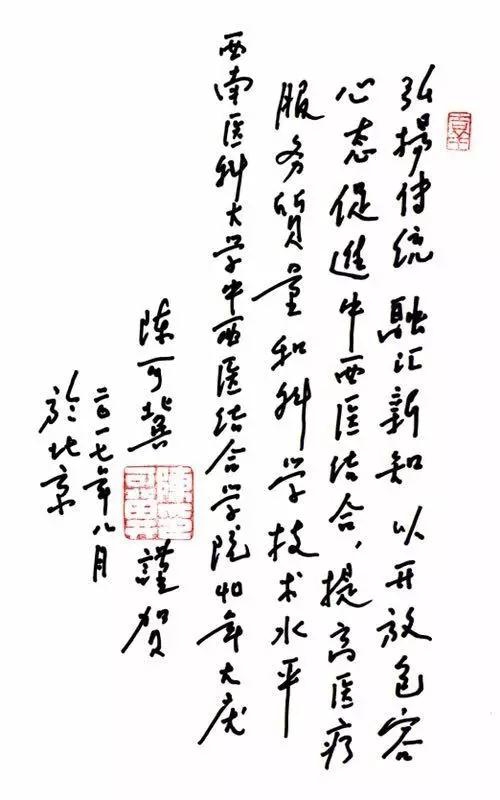 弘扬传统 融汇新知 以开放包容
心态促進中西医结合，提高医疗
服务質量和科学技术水平
西南医科大学中西医结合学院40年大庆
陈可冀 謹贺
二〇一七年八月
於北京